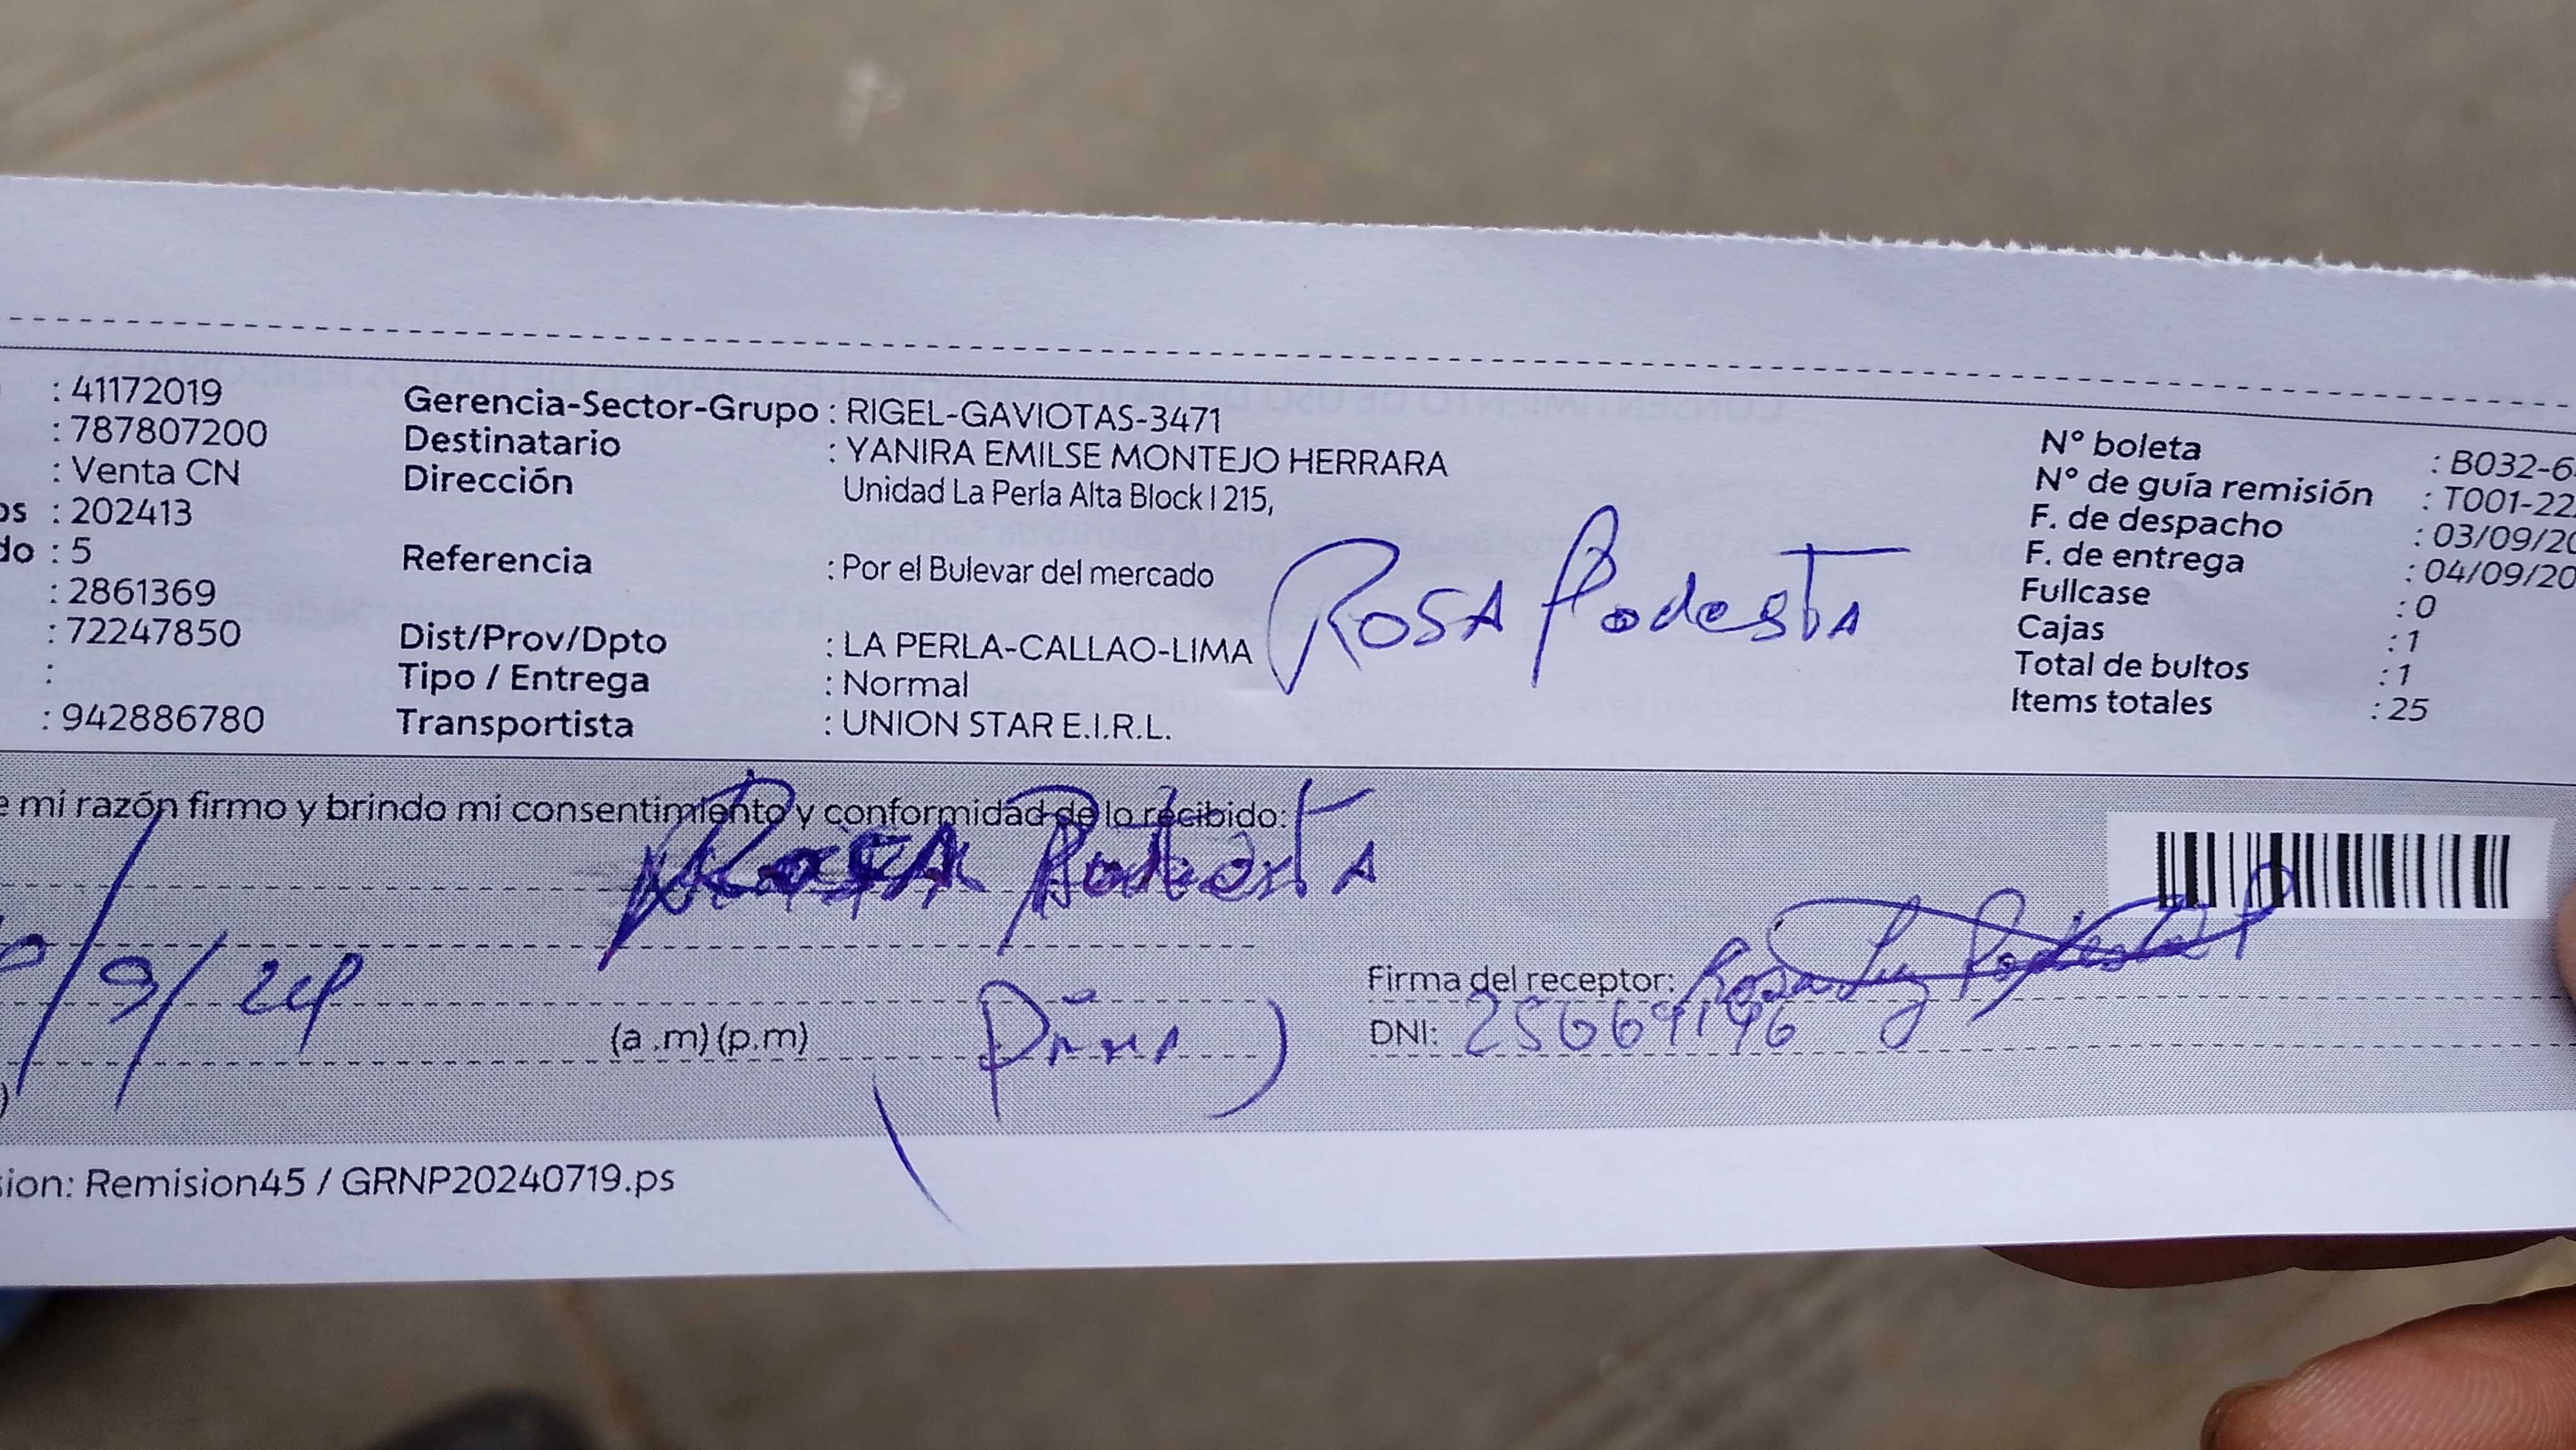 : 41172019
: 787807200
: Venta CN
os : 202413
do : 5
: 2861369
: 72247850
:
: 942886780
Gerencia-Sector-Grupo : RIGEL-GAVIOTAS-3471
Destinatario : YANIRA EMILSE MONTEJO HERRARA
Dirección Unidad La Perla Alta Block I 215,
Referencia : Por el Bulevar del mercado
Dist/Prov/Dpto : LA PERLA-CALLAO-LIMA
Tipo / Entrega : Normal
Transportista : UNION STAR E.I.R.L.
Rosa Podesta
N° boleta : B032-6
N° de guía remisión : T001-22
F. de despacho : 03/09/20
F. de entrega : 04/09/20
Fullcase : 0
Cajas : 1
Total de bultos : 1
Items totales : 25
e mi razón firmo y brindo mi consentimiento y conformidad de lo recibido:
Rosa Podesta
/9/24
(a .m) (p.m)
Firma del receptor: Rosa Luz Podesta P
DNI: 25669196
)
sion: Remision45 / GRNP20240719.ps